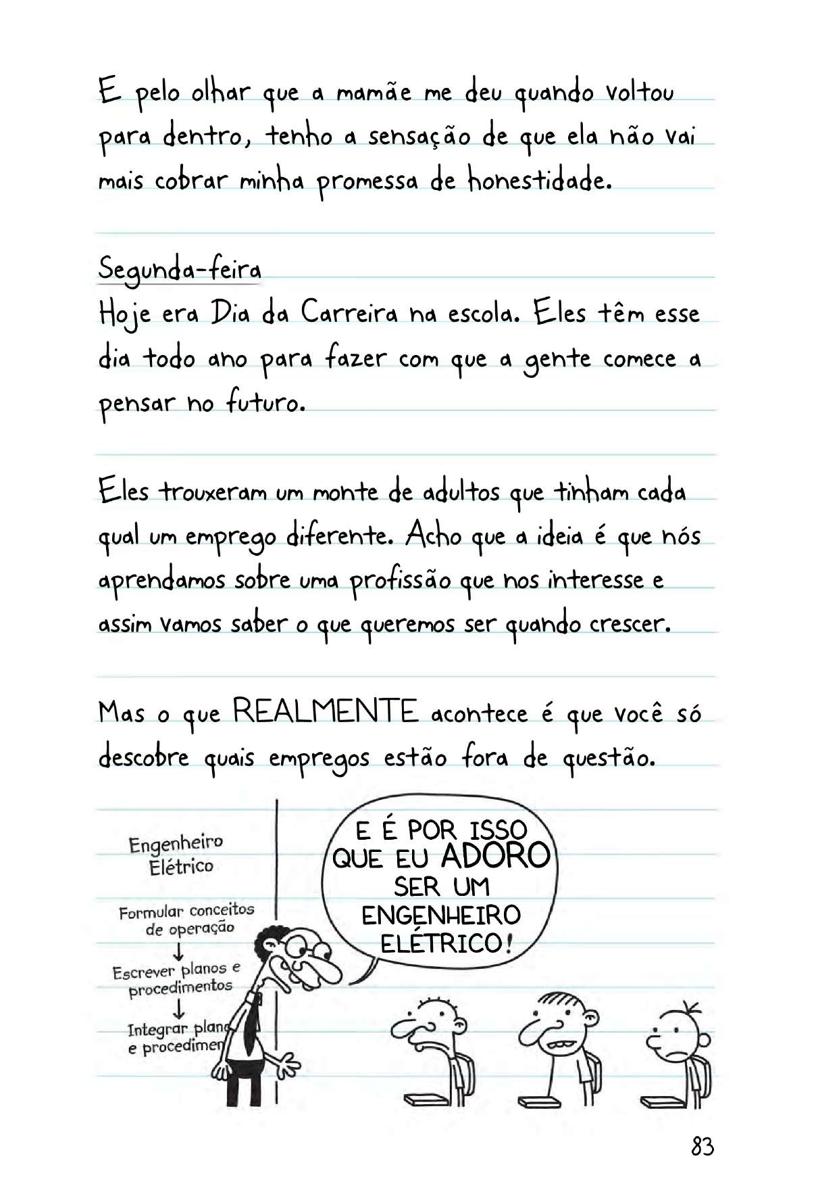 E pelo olhar que a mamãe me deu quando voltou
para dentro, tenho a sensação de que ela não vai
mais cobrar minha promessa de honestidade.
Segunda-feira
Hoje era Dia da Carreira na escola. Eles têm esse
dia todo ano para fazer com que a gente comece a
pensar no futuro.
Eles trouxeram um monte de adultos que tinham cada
qual um emprego diferente. Acho que a ideia é que nós
aprendamos sobre uma profissão que nos interesse e
assim vamos saber o que queremos ser quando crescer.
Mas o que REALMENTE acontece é que você só
descobre quais empregos estão fora de questão.
Engenheiro
Elétrico
Formular conceitos
de operação
Escrever planos e
procedimentos
Integrar plano
e procedimen
E É POR ISSO
QUE EU ADORO
SER UM
ENGENHEIRO
ELÉTRICO!
83